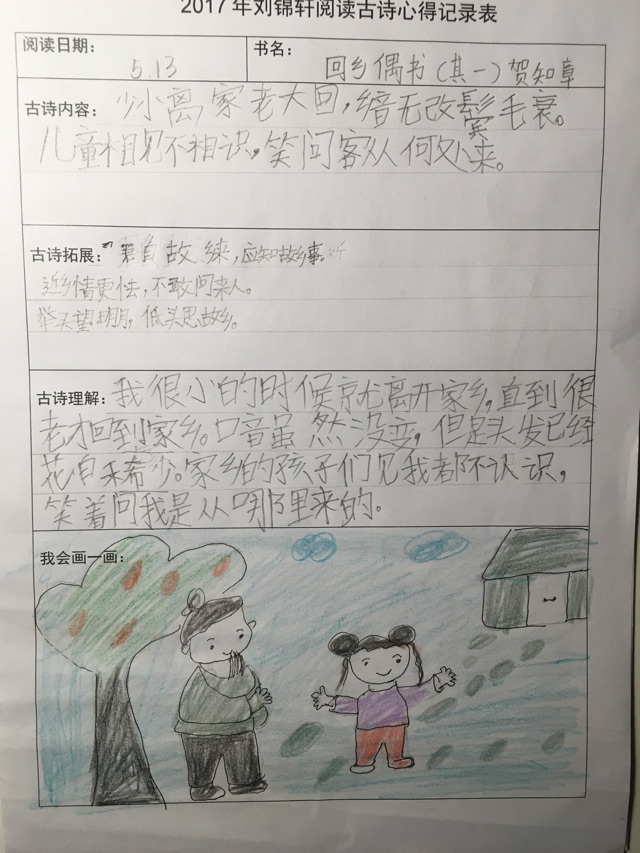 2017年刘锦轩阅读古诗心得记录表
阅读日期： 5.13 书名： 回乡偶书（其一）贺知章
古诗内容：少小离家老大回，乡音无改鬓毛衰。
儿童相见不相识，笑问客从何处来。
古诗拓展：君自故乡来，应知故乡事。
近乡情更怯，不敢问来人。
举头望明月，低头思故乡。
古诗理解：我很小的时候就离开家乡，直到很
老才回到家乡。口音虽然没变，但是头发已经
花白稀少。家乡的孩子们见我都不认识，
笑着问我是从哪里来的。
我会画一画：